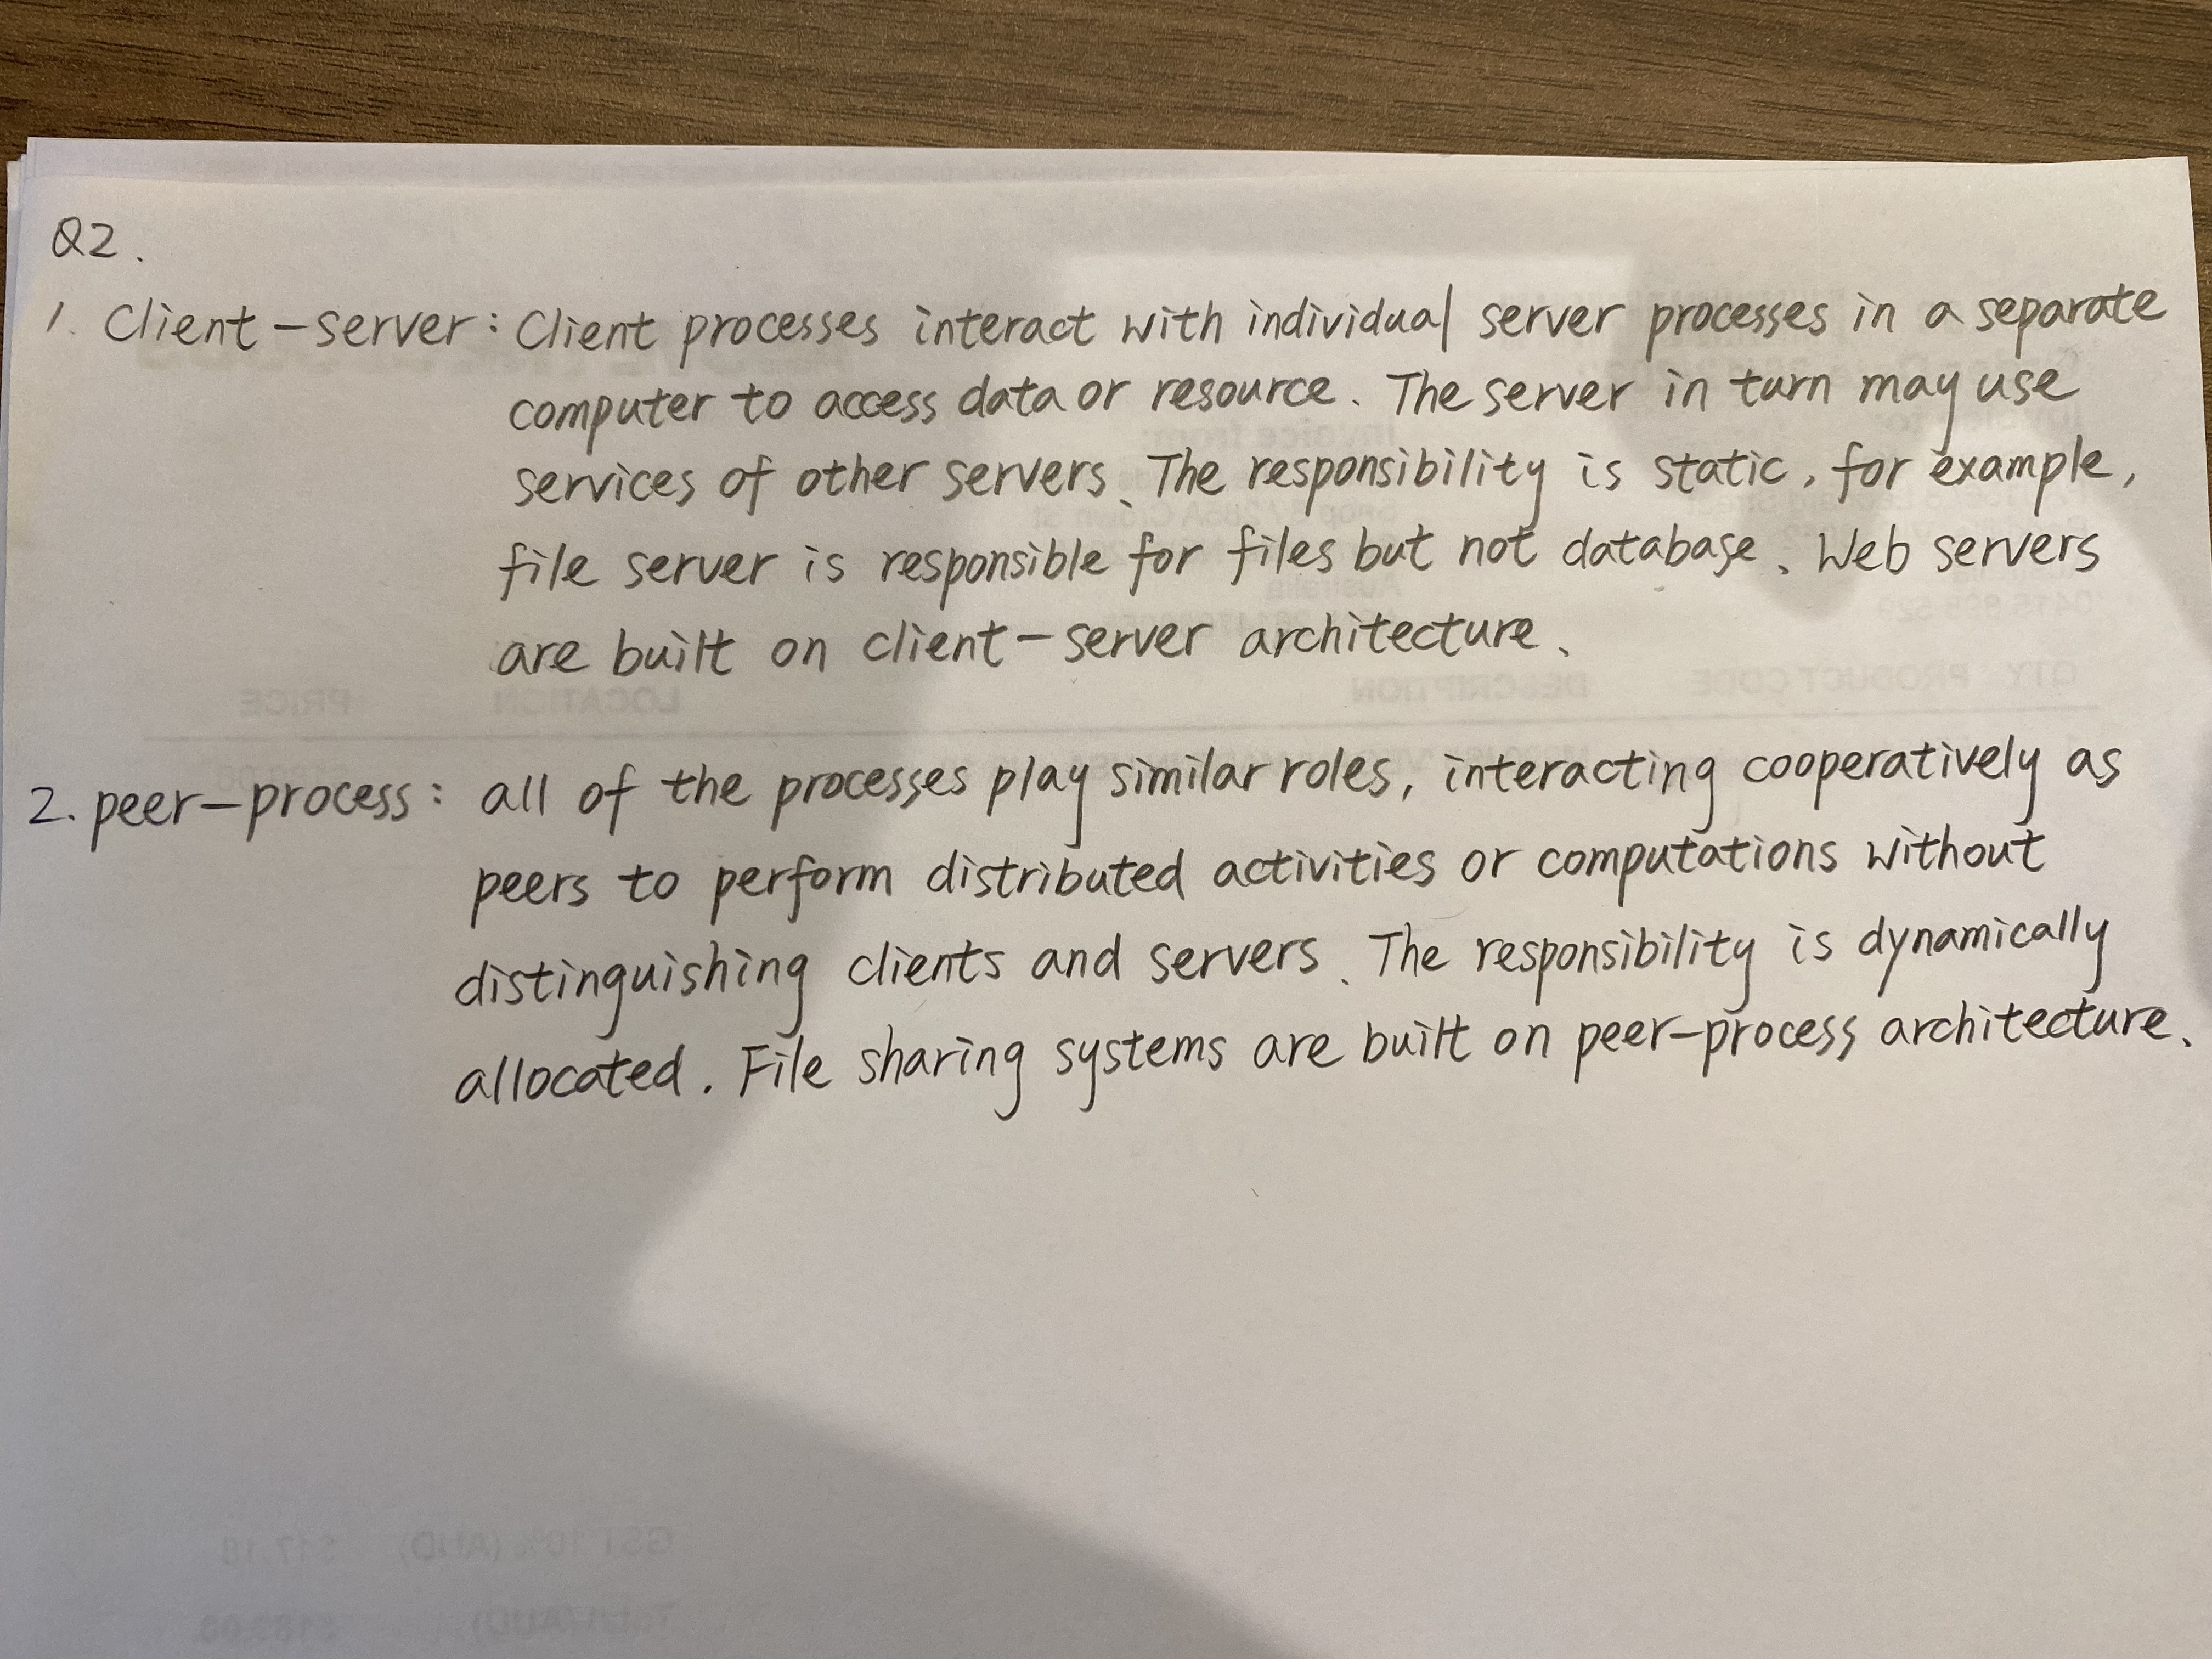 Q2.
1. Client-server: Client processes interact with individual server processes in a separate
computer to access data or resource. The server in turn may use
services of other servers. The responsibility is static, for example,
file server is responsible for files but not database. Web servers
are built on client-server architecture.
2. peer-process: all of the processes play similar roles, interacting cooperatively as
peers to perform distributed activities or computations without
distinguishing clients and servers. The responsibility is dynamically
allocated. File sharing systems are built on peer-process architecture.
Invoice from:
Australia
QTY PRODUCT CODE DESCRIPTION LOCATION PRICE
GST 10% (AUD) $17.18